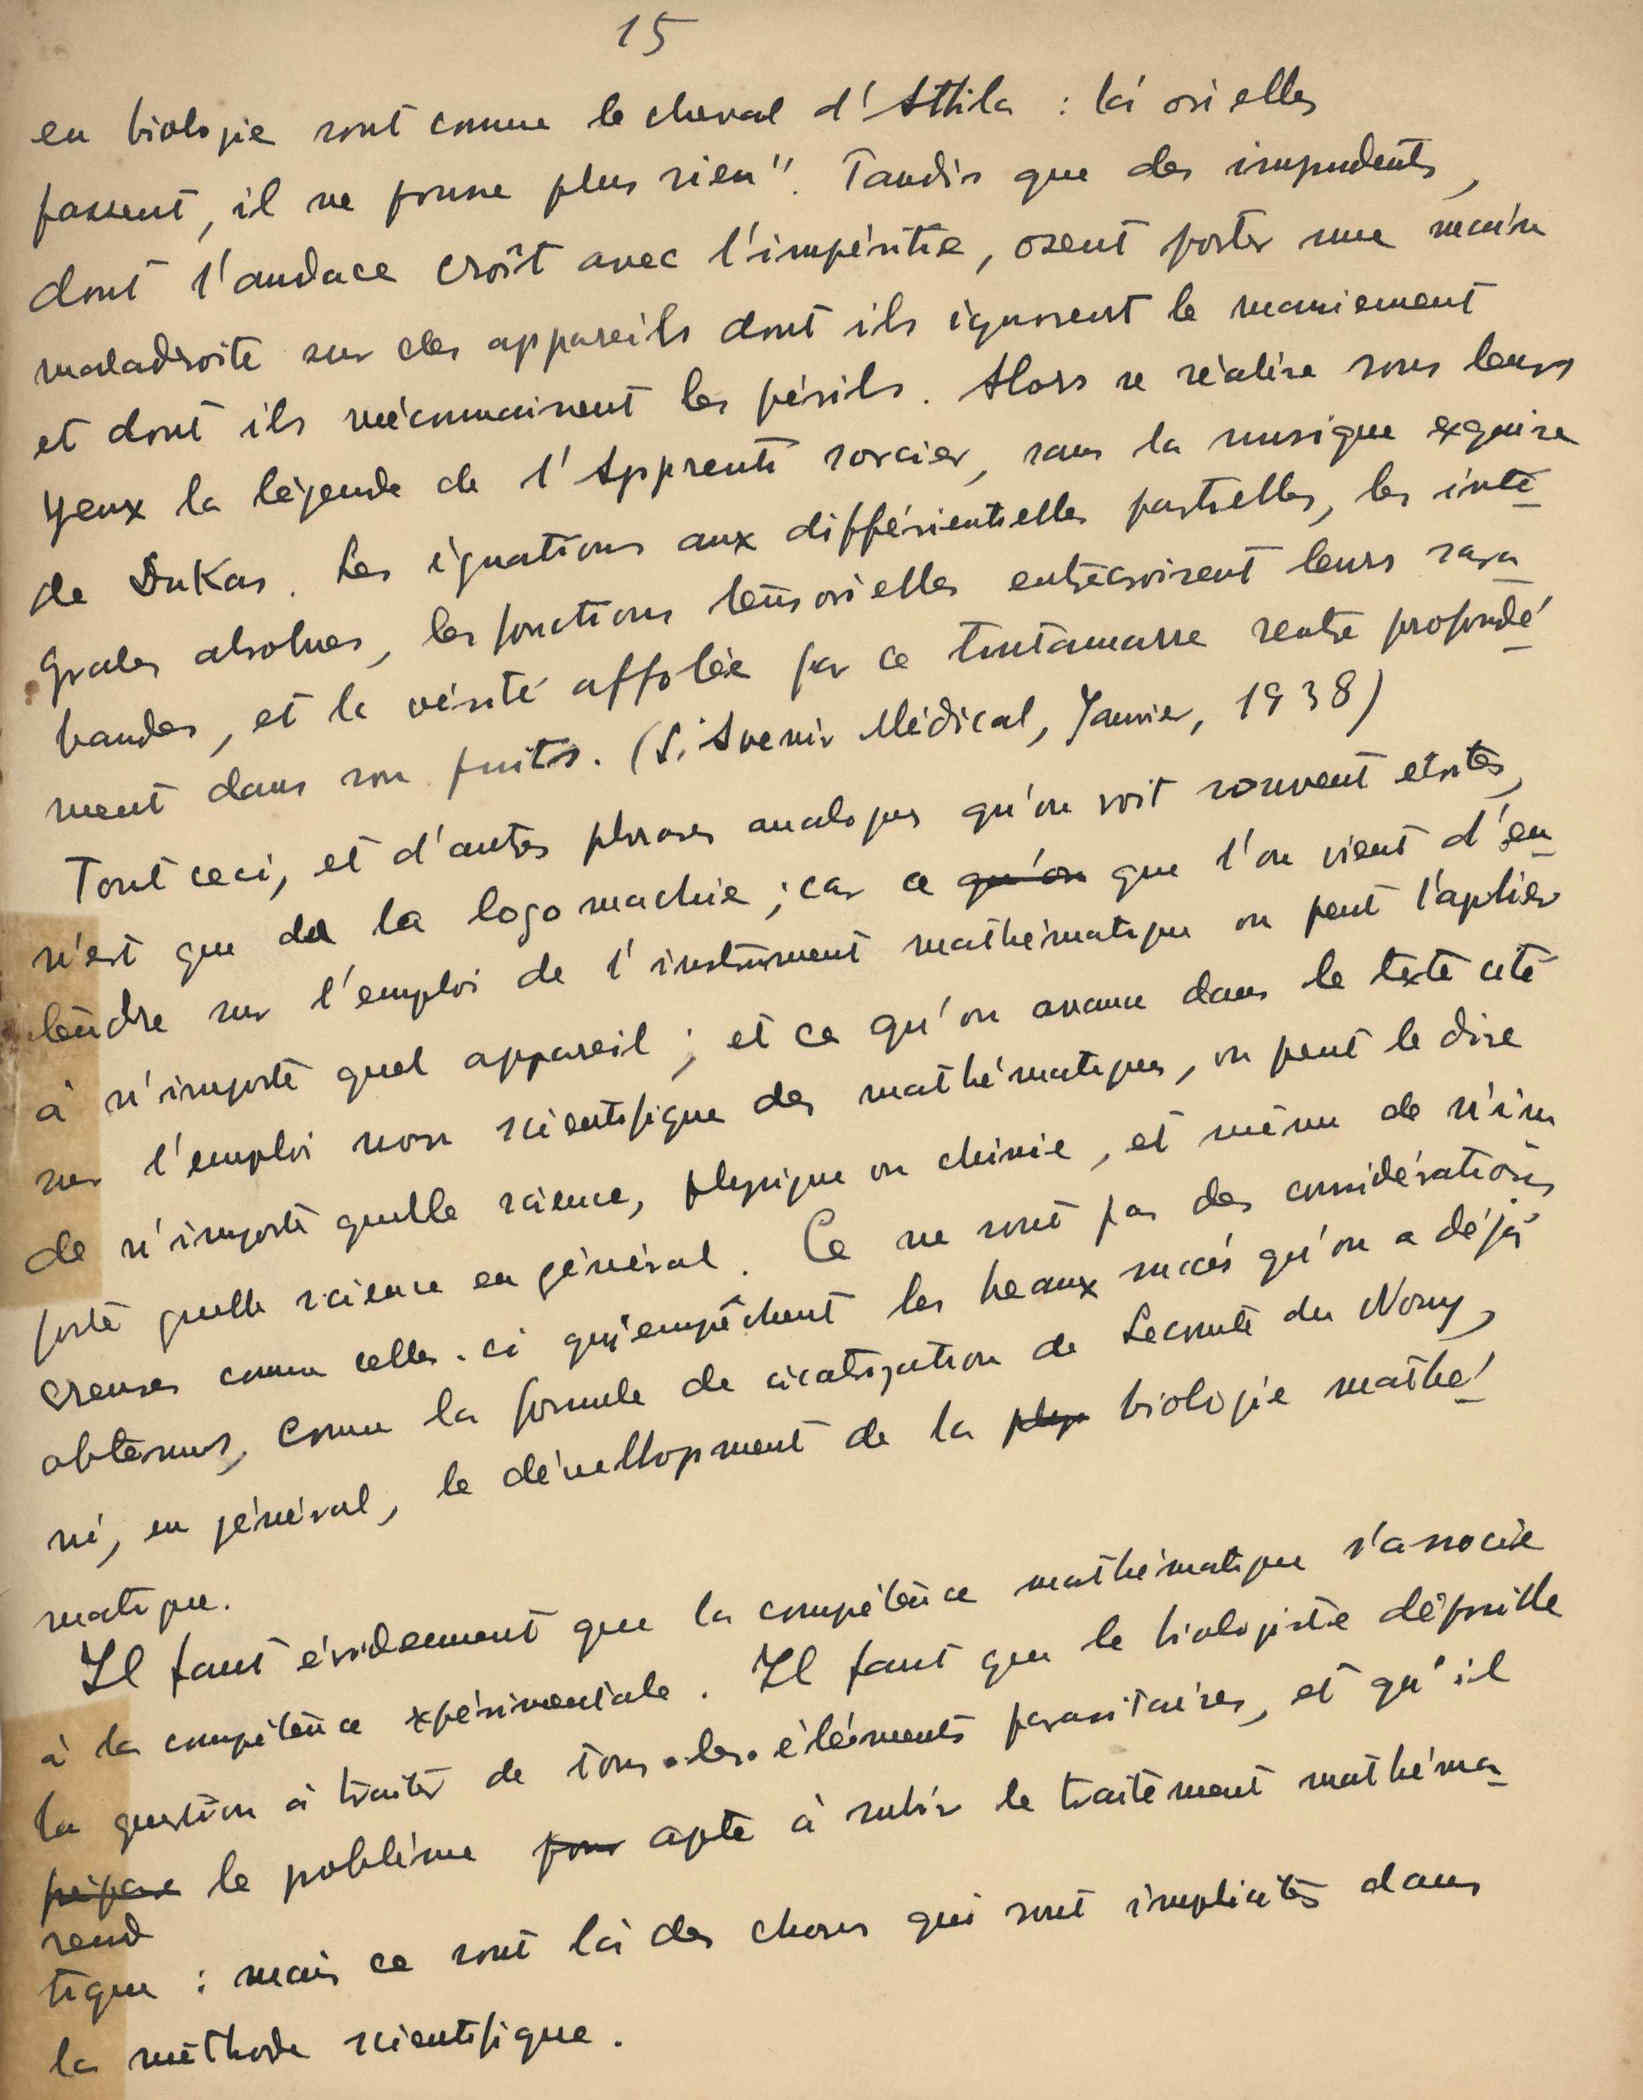 15
en biologie sont comme le cheval d'Attila : là où elles
passent, il ne pousse plus rien". Tandis que des impudents,
dont l'audace croît avec l'impéritie, osent porter une main
maladroite sur des appareils dont ils ignorent le maniement
et dont ils méconnaissent les périls. Alors se réalise sous leurs
yeux la légende de l'Apprenti sorcier, sans la musique exquise
de Dukas. Les équations aux différientielles partielles, les inté-
grales absolues, les fonctions tensorielles entrecroisent leurs sara-
bandes, et la vérité affolée par ce tintamarre rentre profondé-
ment dans son puits. (L'Avenir Médical, Janvier, 1938)
Tout ceci, et d'autres phrases analogues qu'on voit souvent ecrites,
n'est que de la logomachie ; car ce qu'on que l'on vient d'en-
tendre sur l'emploi de l'instrument mathématique on peut l'aplier
à n'importe quel appareil ; et ce qu'on avance dans le texte cité
sur l'emploi non scientifique des mathématiques, on peut le dire
de n'importe quelle science, physique ou chimie, et même de n'im
porte quelle science en général. Ce ne sont pas des considérations
creuses comme celles-ci qui empêchent les beaux succés qu'on a déjà
obtenus, comme la formule de cicatrization de Lecomte du Nouy,
ni, en général, le dévellopment de la phys biologie mathé-
matique.
Il faut évidemment que la compétence mathématique s'associe
à la compétence expérimentale. Il faut que le biologiste dépouille
la question à traiter de tous les éléments parasitaires, et qu'il
prépare le poblème pour apte à subir le traitement mathéma-
rend
tique : mais ce sont là des choses qui sont implicites dans
la méthode scientifique.